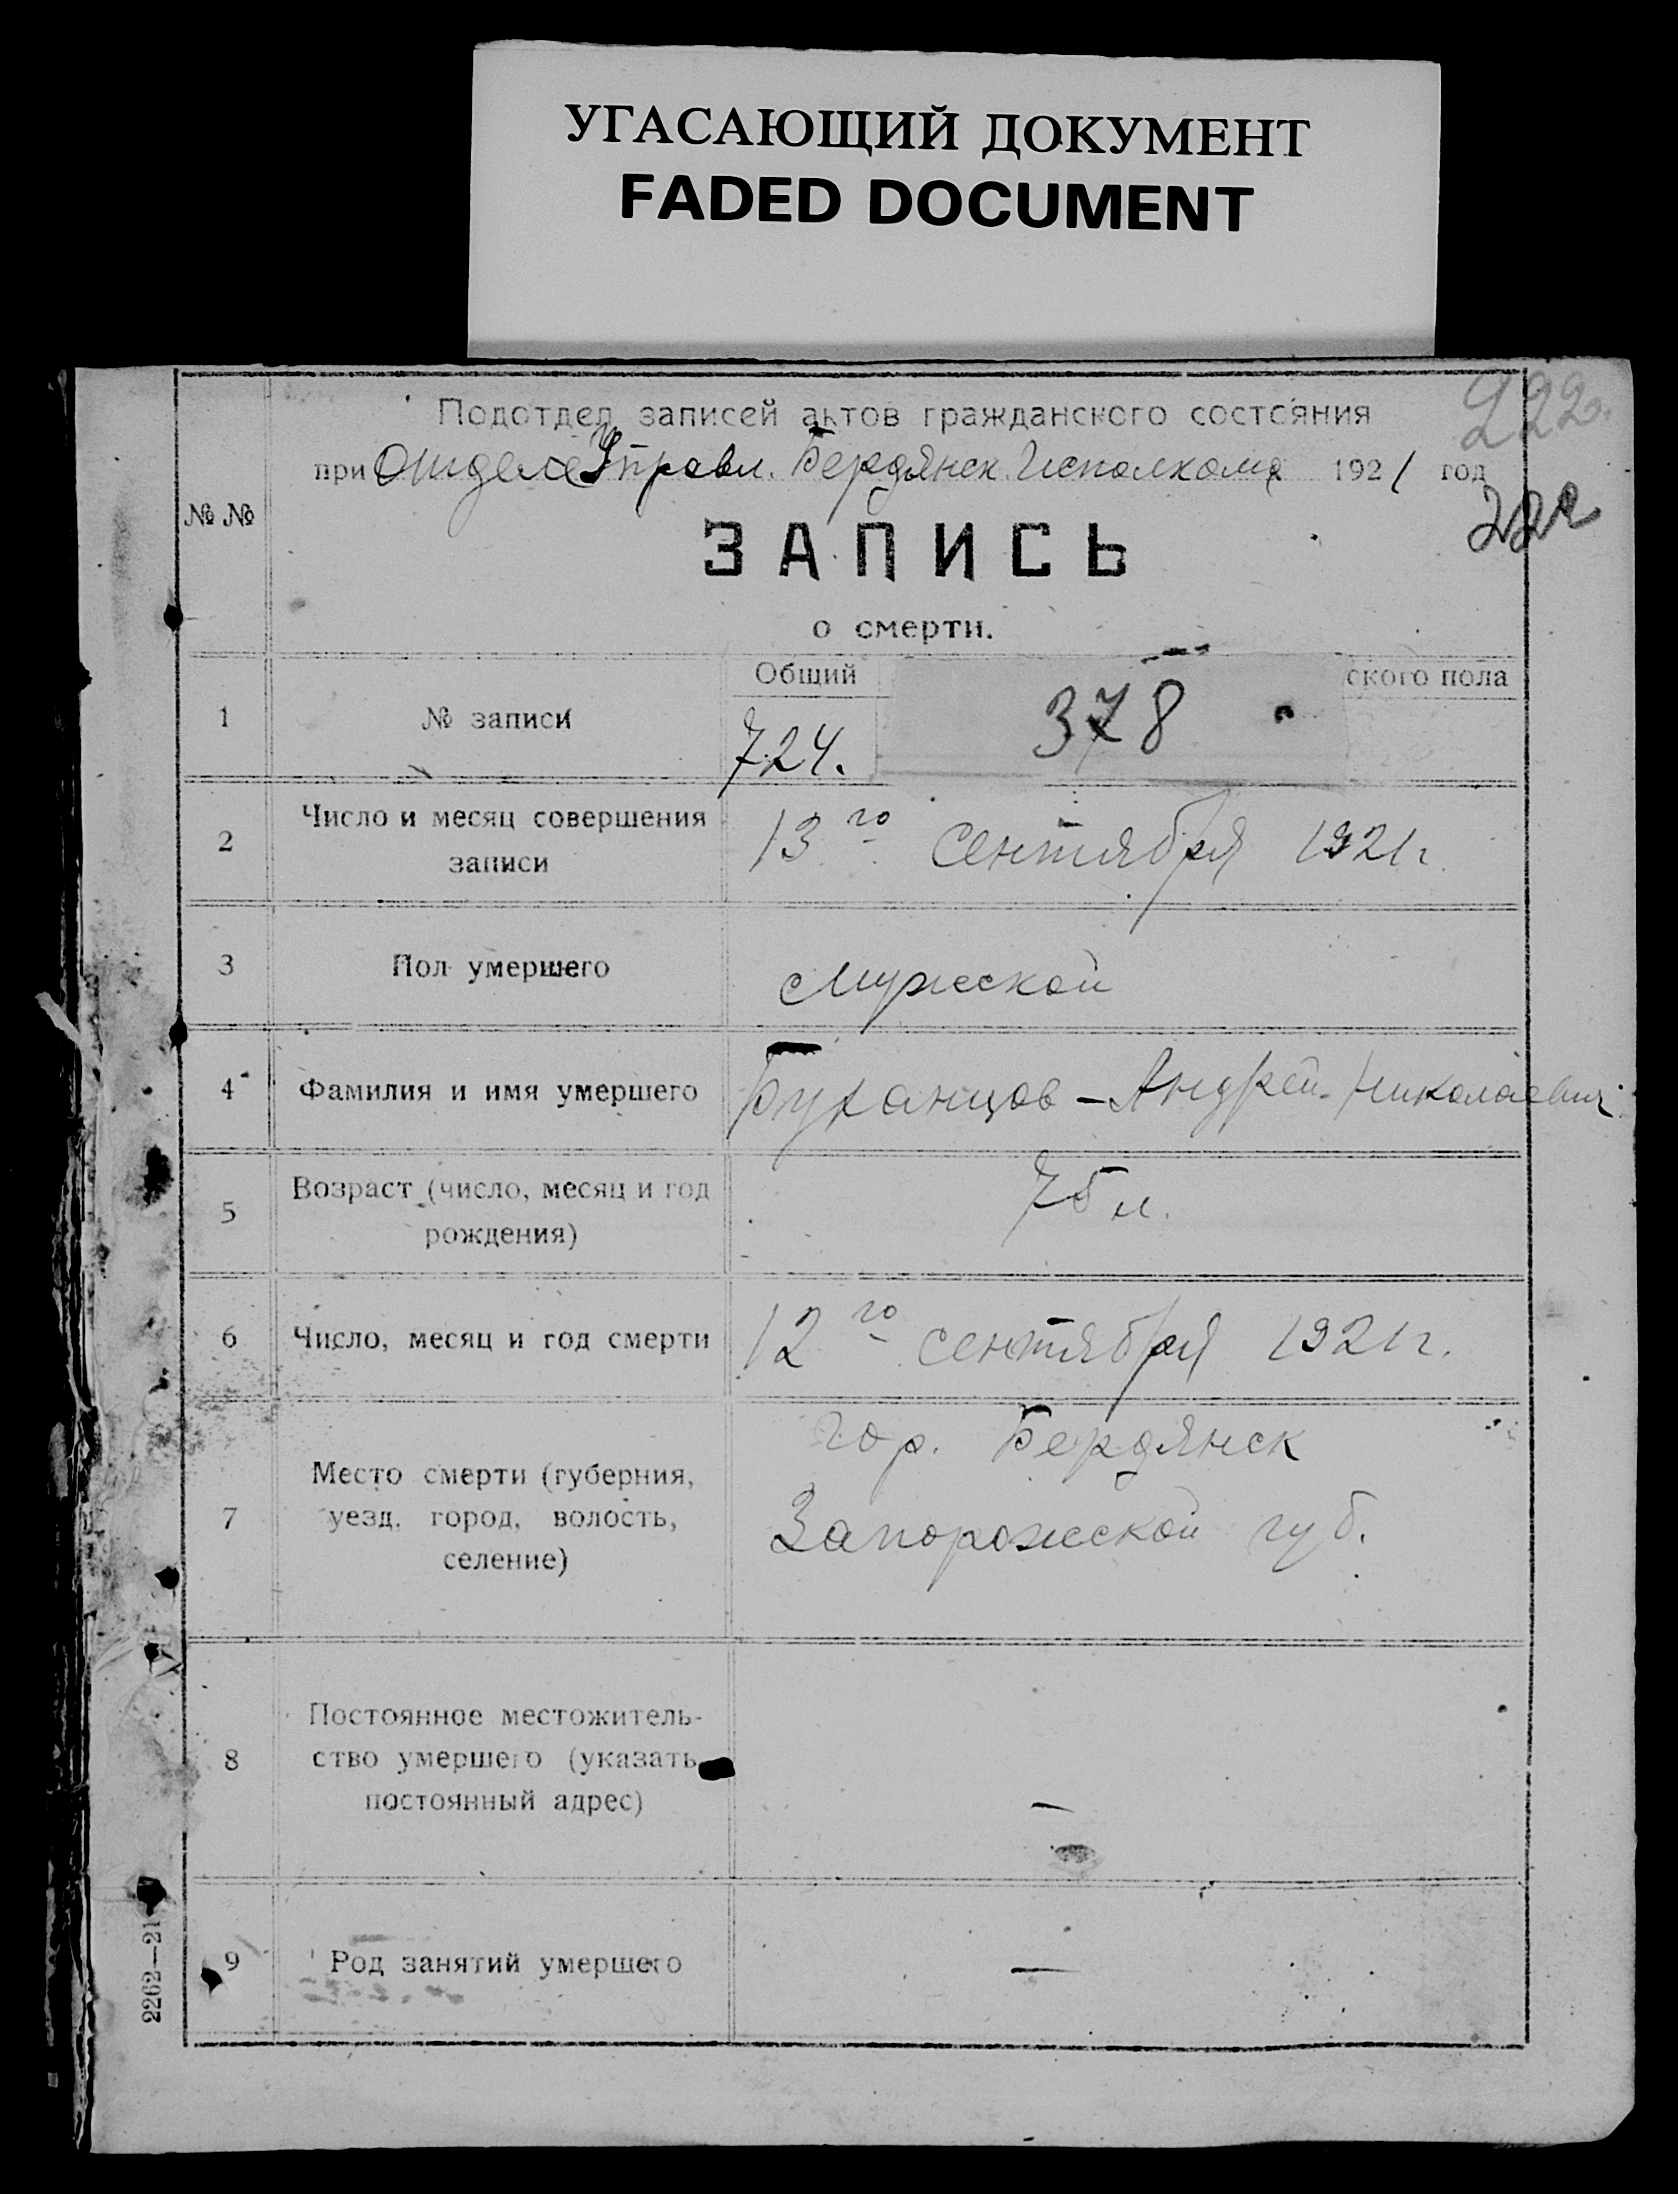 УГАСАЮЩИЙ ДОКУМЕНТ
FADED DOCUMENT
222
Подотдел записей актов гражданского состояния
при Отделе Управл. Бердянск. Исполкома 1921 год
222
№ №
ЗАПИСЬ
о смерти.
Общий
ского пола
1 № записи 724. 378
2 Число и месяц совершения
записи
13го сентября 1921 г.
3 Пол умершего Мужской
4 Фамилия и имя умершего Буханцов - Андрей Николаевич
5 Возраст (число, месяц и год
рождения)
75 л.
6 Число, месяц и год смерти 12го сентября 1921 г.
7 Место смерти (губерния,
уезд, город, волость,
селение)
гор. Бердянск
Запорожской губ.
8 Постоянное местожитель-
ство умершего (указать
постоянный адрес)
—
9 Род занятий умершего —
2262—21